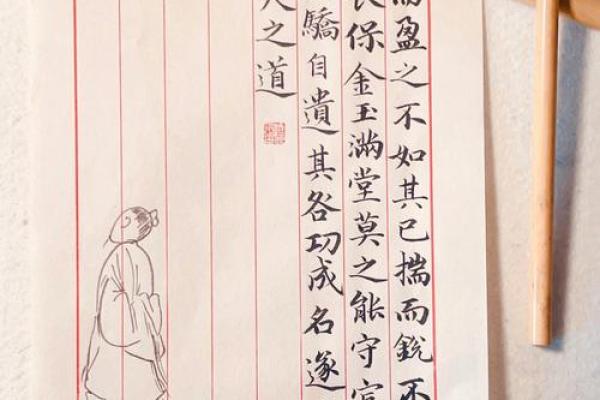 而盈之不如其已揣而銳不
長保金玉滿堂莫之能守
驕自遺其各功成名遂
天之道